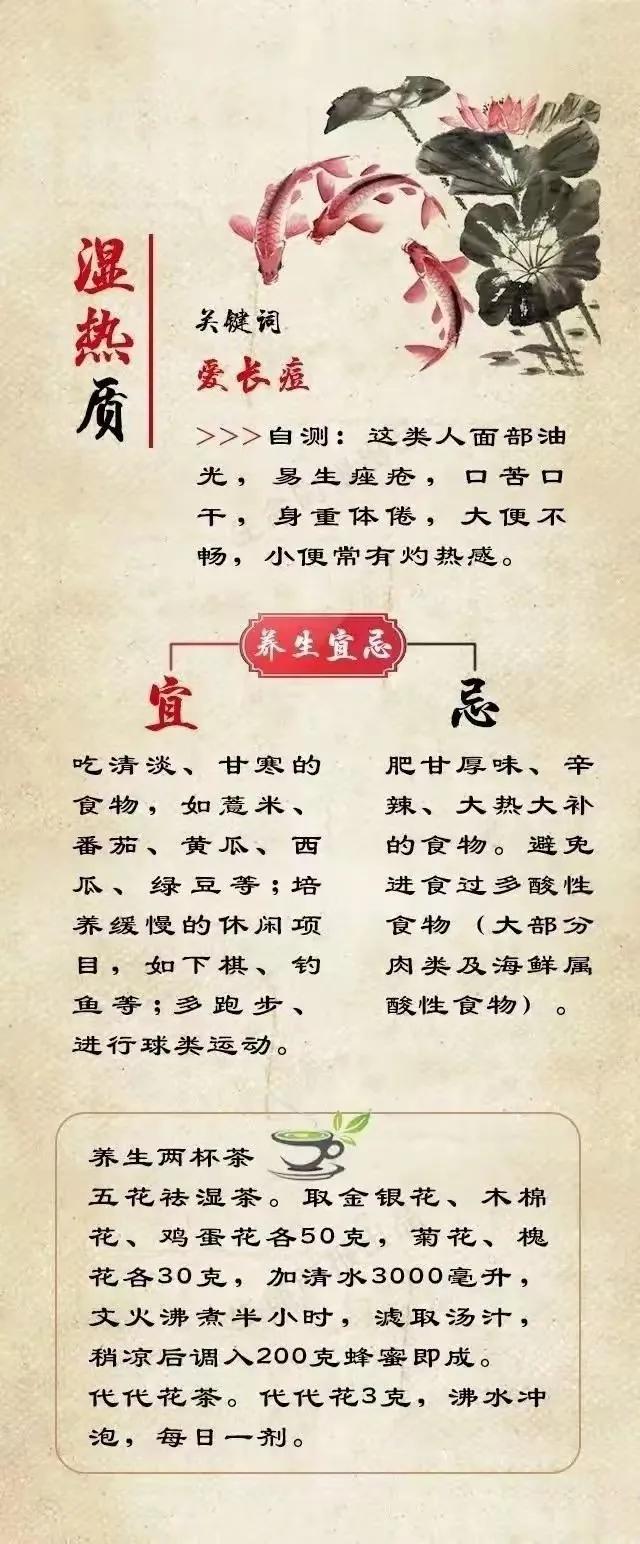 湿热质
关键词
爱长痘
>>>自测：这类人面部油
光，易生痤疮，口苦口
干，身重体倦，大便不
畅，小便常有灼热感。
养生宜忌
宜
吃清淡、甘寒的
食物，如薏米、
番茄、黄瓜、西
瓜、绿豆等；培
养缓慢的休闲项
目，如下棋、钓
鱼等；多跑步、
进行球类运动。
忌
肥甘厚味、辛
辣、大热大补
的食物。避免
进食过多酸性
食物（大部分
肉类及海鲜属
酸性食物）。
养生两杯茶
五花祛湿茶。取金银花、木棉
花、鸡蛋花各50克，菊花、槐
花各30克，加清水3000毫升，
文火沸煮半小时，滤取汤汁，
稍凉后调入200克蜂蜜即成。
代代花茶。代代花3克，沸水冲
泡，每日一剂。